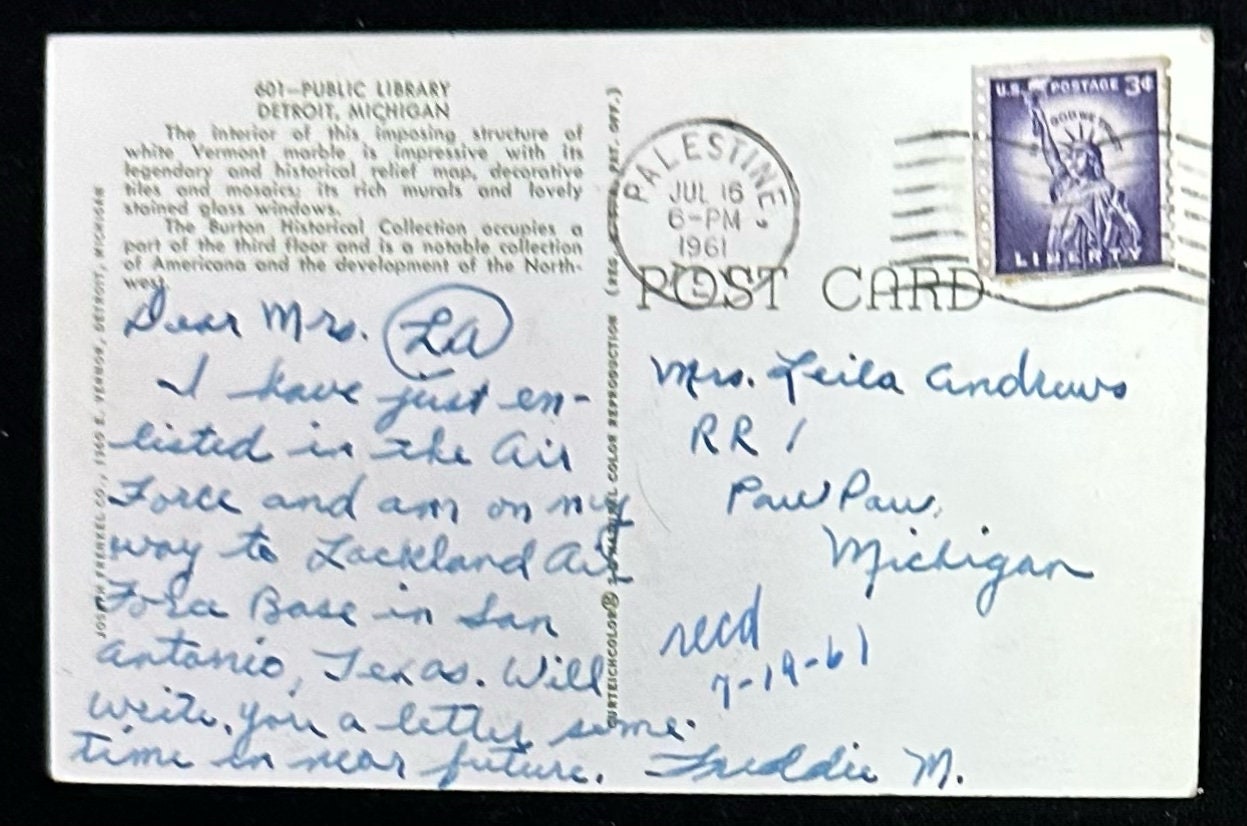 601—PUBLIC LIBRARY
DETROIT, MICHIGAN
The interior of this imposing structure of
white Vermont marble is impressive with its
legendary and historical relief map, decorative
tiles and mosaics; its rich murals and lovely
stained glass windows.
The Burton Historical Collection occupies a
part of the third floor and is a notable collection
of Americana and the development of the North-
west.
Dear Mrs. LA
I have just en-
listed in the Air
Force and am on my
way to Lackland Air
Force Base in San
Antonio, Texas. Will
write you a letter some-
time in near future. Freddie M.
JOSEPH FRENKEL CO., E. VERNOR, DETROIT, MICHIGAN
CURTEICHCOLOR® COLOR REPRODUCTION (REG. U.S. PAT. OFF.)
PALESTINE
JUL 16
6-PM
1961
POST CARD
U.S. POSTAGE 3¢
IN GOD WE TRUST
LIBERTY
Mrs. Leila Andrews
RR 1
Paw Paw,
Michigan
recd
7-19-61